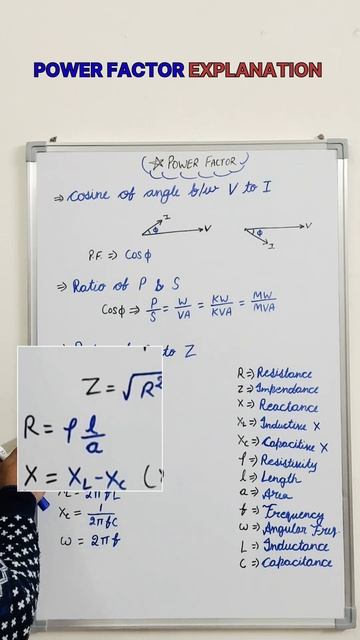 POWER FACTOR EXPLANATION
☆ POWER FACTOR
⇒ Cosine of angle b/w V to I
I
ϕ
V
V
ϕ
I
P.F. ⇒ Cosϕ
⇒ Ratio of P & S
Cosϕ ⇒ P/S = W/VA = KW/KVA = MW/MVA
to Z
Z = √R²
R = ρ l/a
X = XL - XC
= 2πfL
XC = 1/2πfC
ω = 2πf
R ⇒ Resistance
Z ⇒ Impendance
X ⇒ Reactance
XL ⇒ Inductive X
XC ⇒ Capacitive X
ρ ⇒ Resistivity
l ⇒ Length
a ⇒ Area
f ⇒ Frequency
ω ⇒ Angular Freq.
L ⇒ Inductance
C ⇒ Capacitance